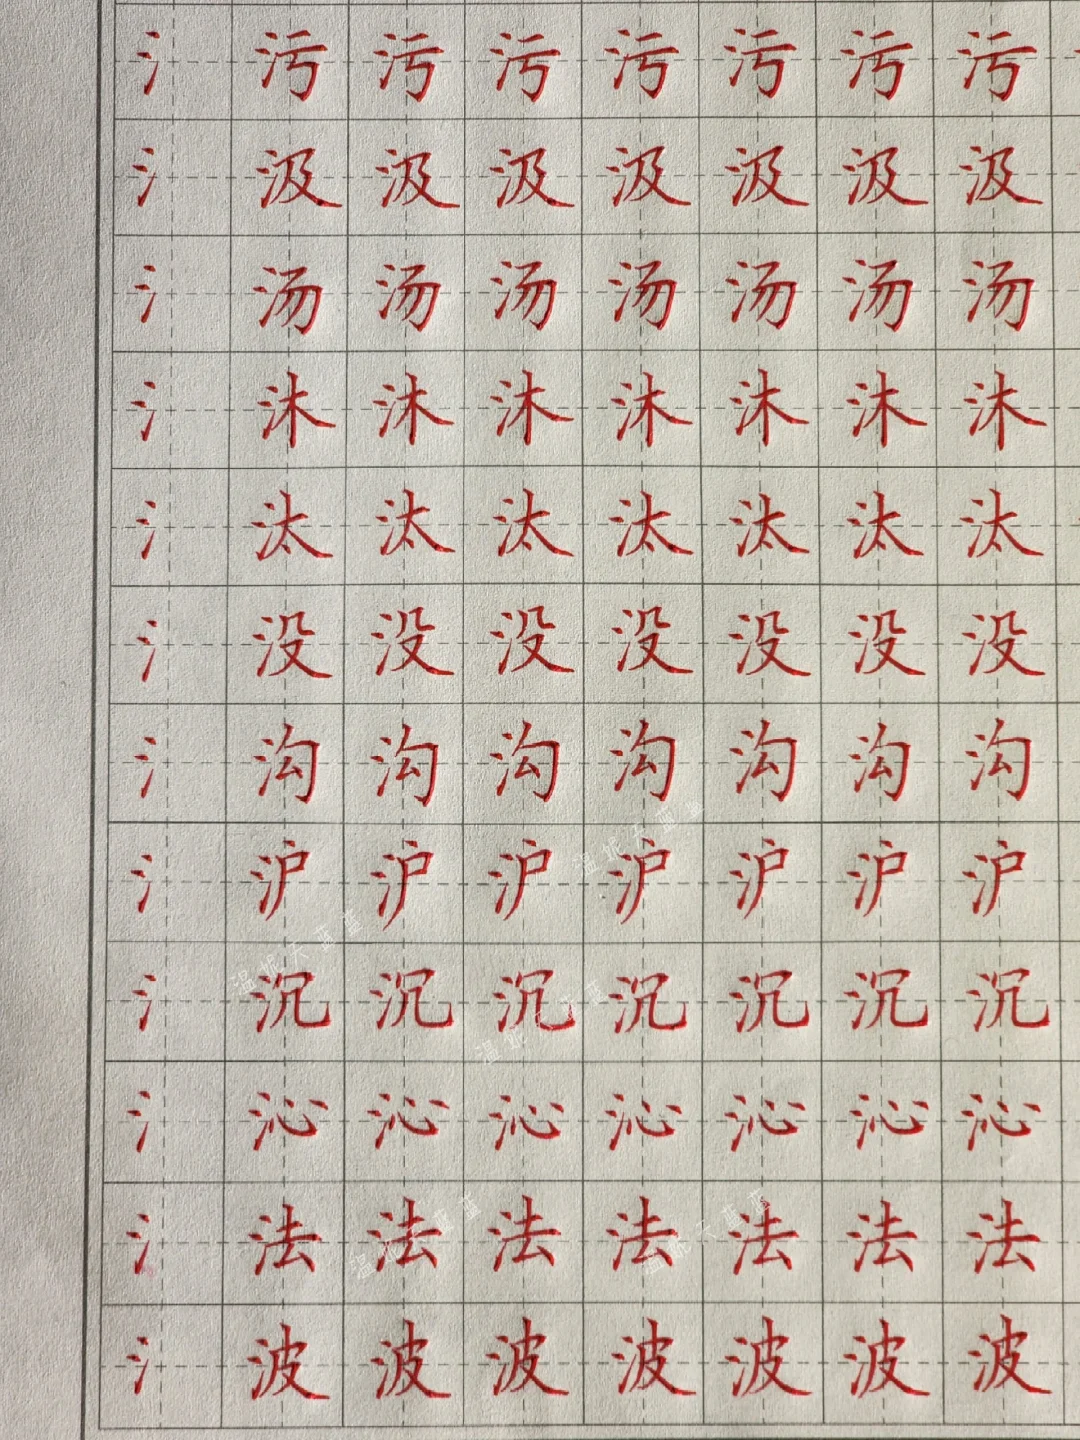 氵 污 污 污 污 污 污 污
氵 汲 汲 汲 汲 汲 汲 汲
氵 汤 汤 汤 汤 汤 汤 汤
氵 沐 沐 沐 沐 沐 沐 沐
氵 汰 汰 汰 汰 汰 汰 汰
氵 没 没 没 没 没 没 没
氵 沟 沟 沟 沟 沟 沟 沟
氵 沪 沪 沪 沪 沪 沪 沪
氵 沉 沉 沉 沉 沉 沉 沉
氵 沁 沁 沁 沁 沁 沁 沁
氵 法 法 法 法 法 法 法
氵 波 波 波 波 波 波 波